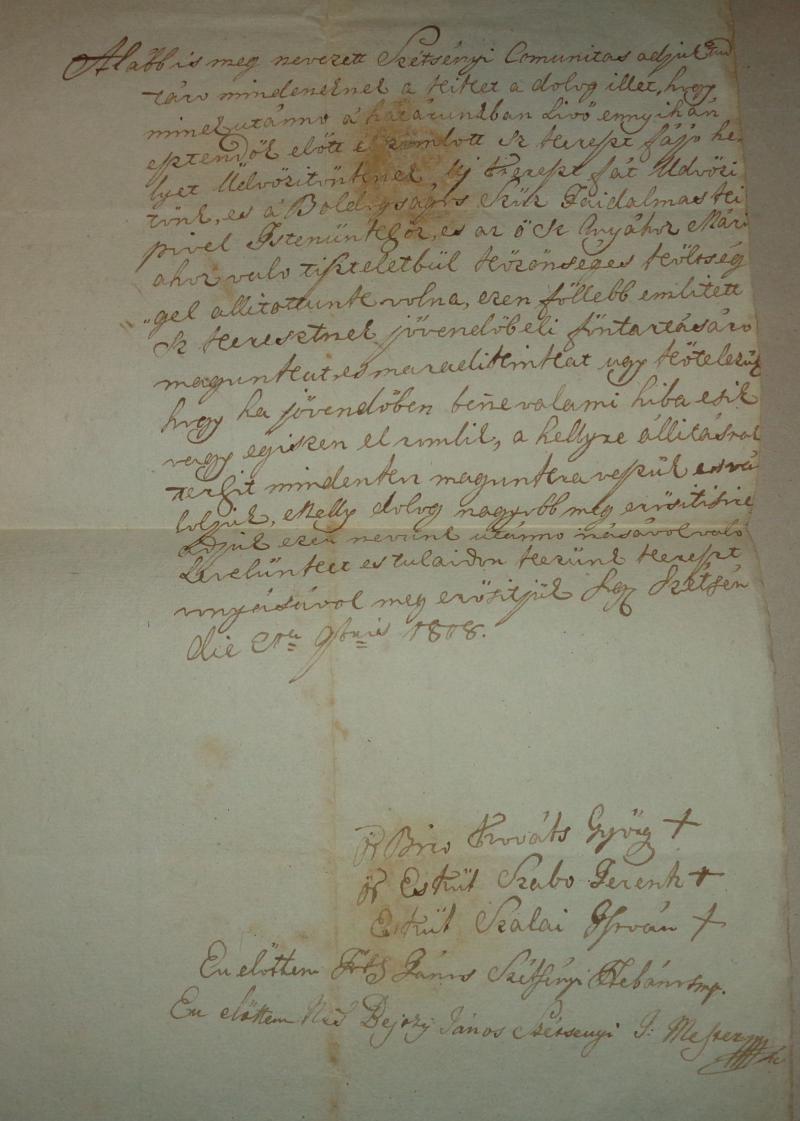 Alább is meg nevezett Szétsényi Comunitas adjuk tud
tára mindeneknek a kiket a dolog illet, hogy
minekutánna a határunkban Livő ennyihán
eptendők előtt el romlott Sz Kerept fája he
lyet Üdvözitönknek Uj Kerept fát Üdvözi
tönk, es a Boldogságos Szűz Faidalmas ké
pivel Istenünkhöz, es az ő Sz Anyához Mári
ahoz valo tiszteletbül közönséges költség
gel allitottunk volna, ezen föllebb emlitett
Sz keresztnek jövendőbeli föntartására
magunkat es maraditkinkat ugy kötelezük
hogy ha jövendőben benne valami hiba esik
vagy egiszen el romlik, a hellyre állitásnak
terhit mindenkor magunkra vészük es vá
loljuk, Melly dolog nagyobb meg erősitisire
adjuk ezen nevünk utánno irásával valo
Levelünket es tulaidon kezünk kerept
vonyásával meg erősitjük Sig Szétsén
die 2da 9bris 1818.
Biro Horváts György +
Esküt Szabo Ferenk +
Esküt Szalai István +
En előttem János Szétsényi Plebános mp.
En előttem János Szétsenyi I: Mester mp